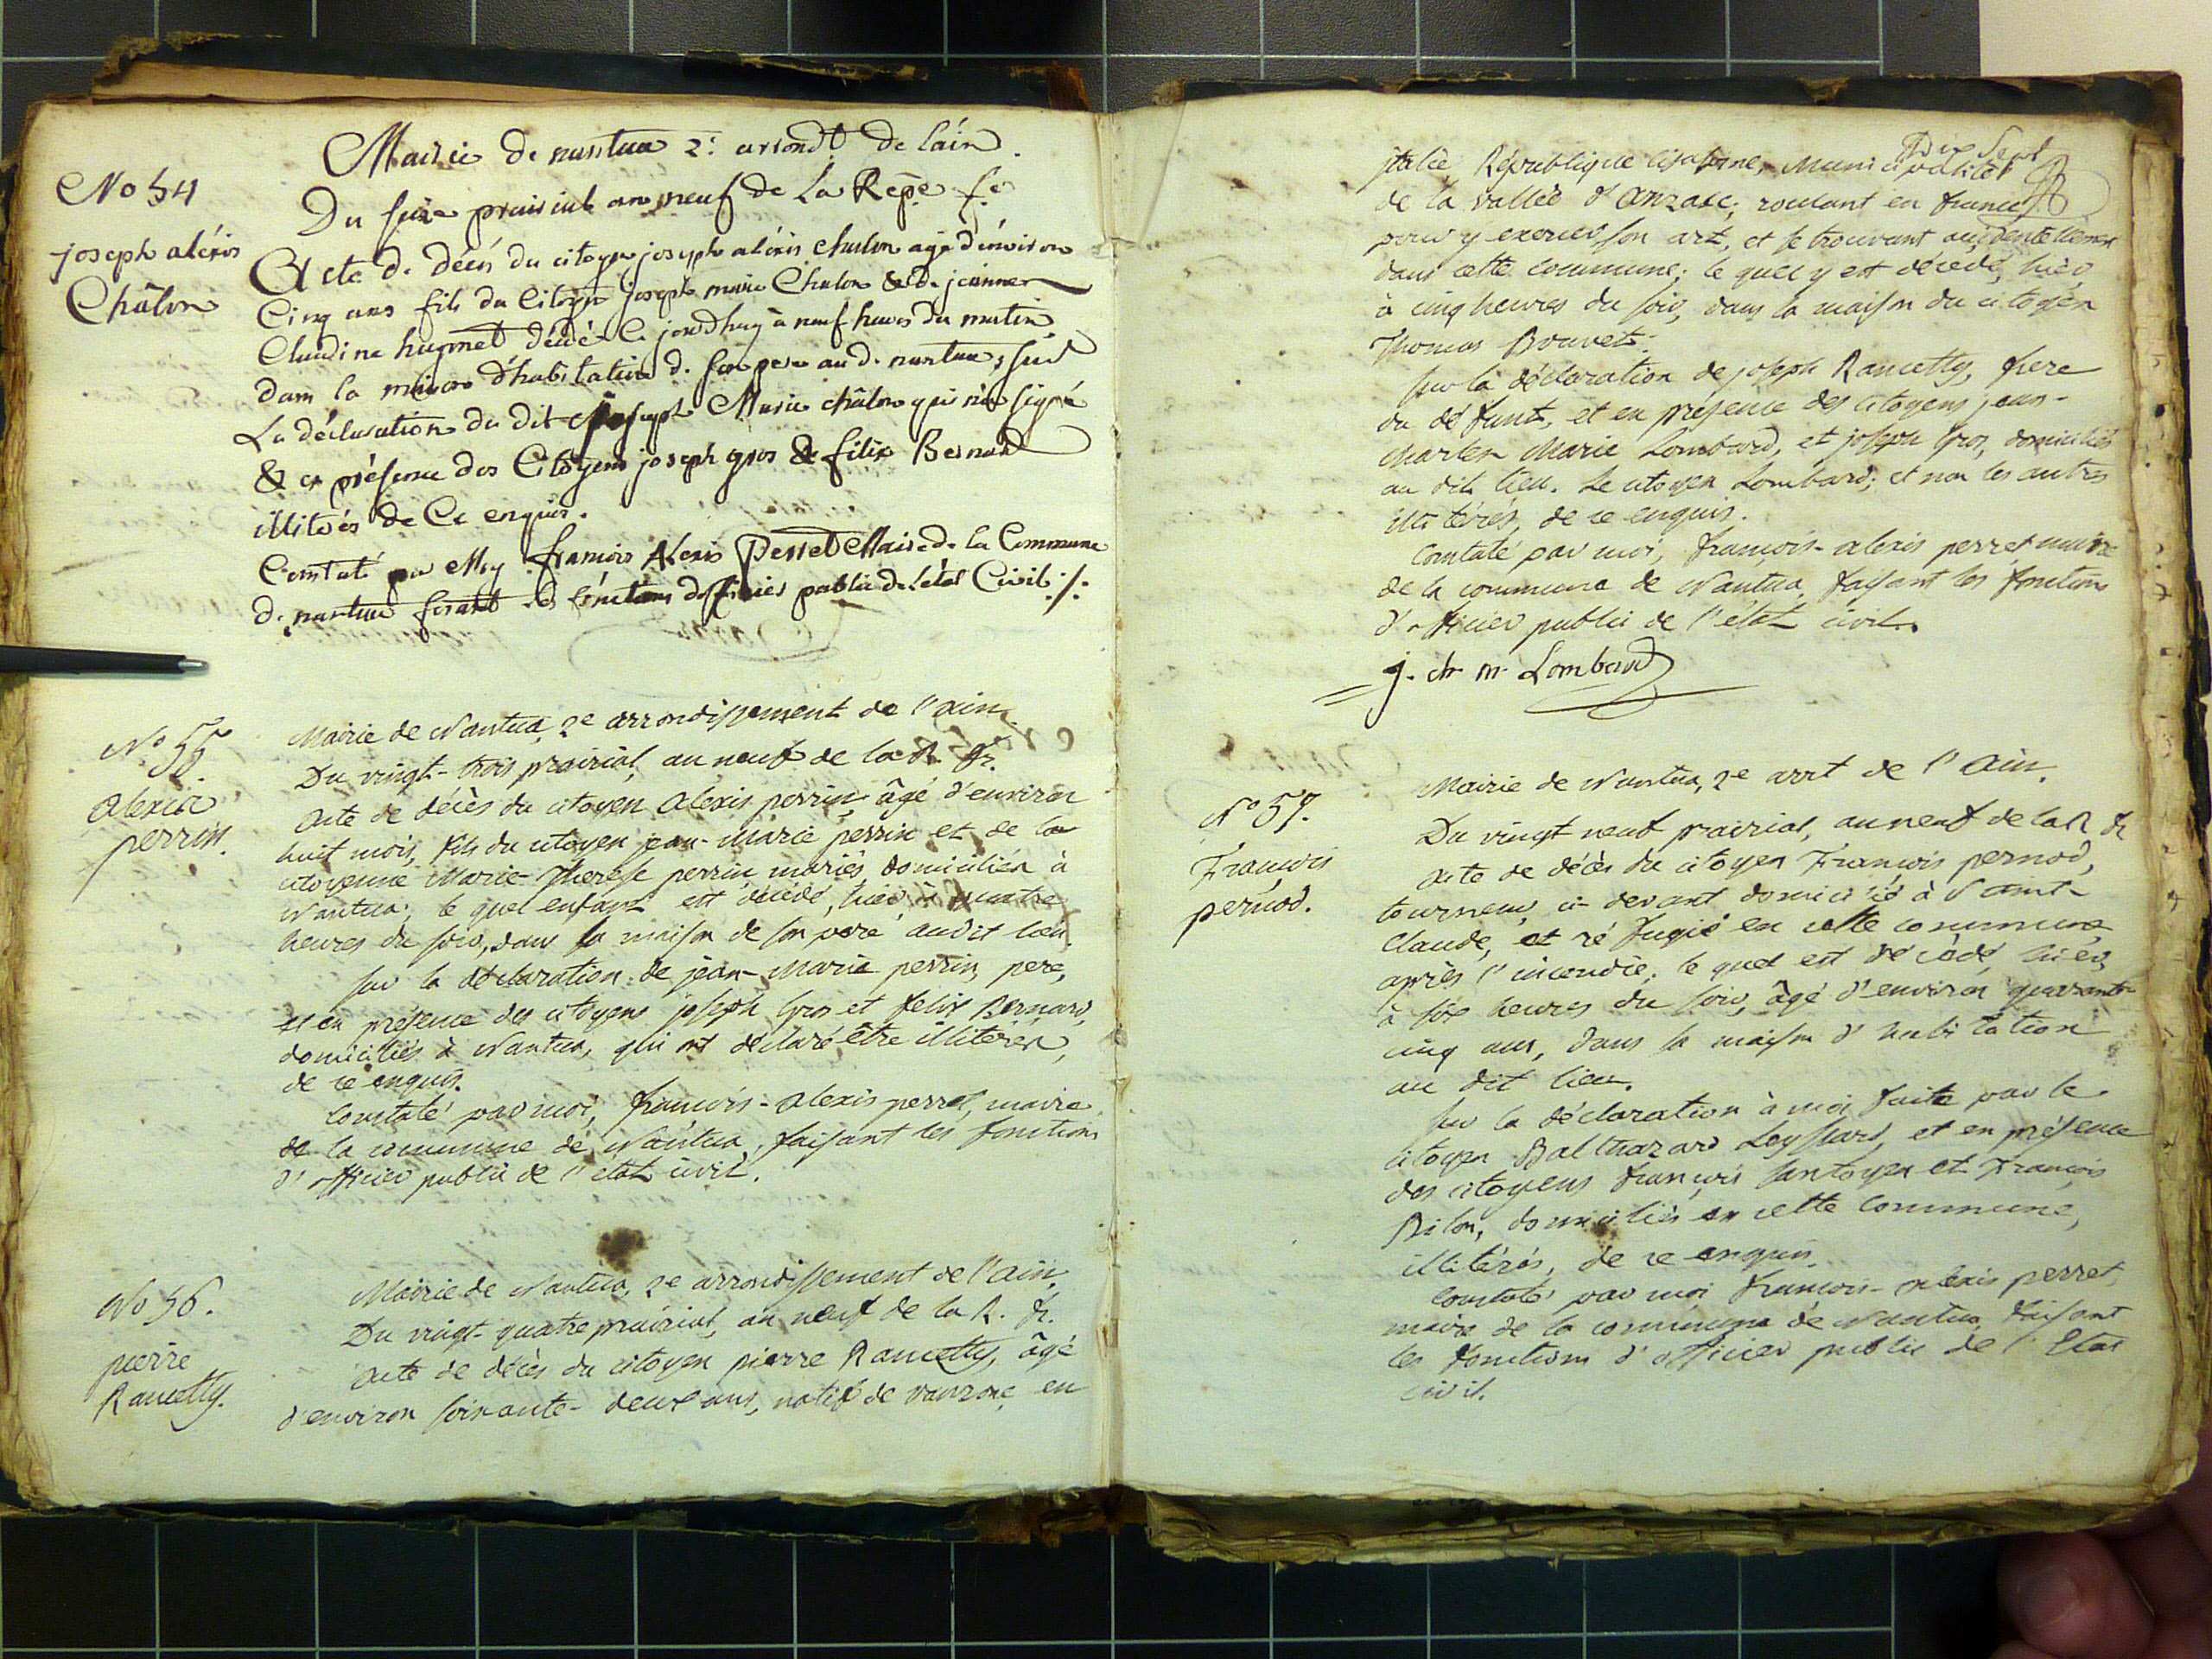 Mairie de nantua 2.e arrondt de l'ain.
No 54
joseph aléxis
Châlon
Du seize prairial an neuf de La Repe. fe.
Acte de décés du citoyen joseph aléxis chalon agé d'environ
Cinq ans fils du Citoyen joseph marie Chalon & de jeanne
Claudine hugonet décédé ce jourdhuy à neuf heures du matin
dans la maison d'habitation de son pere au d. nantua, sur
La déclaration du dit joseph Marie châlon qui n'a signé
& en présence des Citoyens joseph gros & félix Bernard
illitérés de Ce enquis.
Constaté par Moy françois Aléxis Perret Maire de la Commune
de nantua fesant les fonctions d'officier public de l'état Civil ./.
No 55.
Alexis
perrin.
Mairie de Nantua, 2e arrondissement de l'ain.
Du vingt-trois prairial, an neuf de la R. fr.
Acte de décès du citoyen Alexis perrin, âgé d'environ
huit mois, fils du citoyen jean-Marie perrin et de la
citoyenne Marie-Therese perrin mariés, domiciliés à
Nantua; le quel enfant est décédé, hier à quatre
heures du soir, dans la maison de son pere audit lieu.
Sur la déclaration de jean-Marie perrin, pere,
et en présence des citoyens joseph Gros et félix Bernard,
domiciliés à Nantua, qui ont déclaré être illitérés,
de ce enquis.
Constaté par moi, françois-alexis perret, maire
de la commune de Nantua, faisant les fonctions
d'officier public de l'état civil.
No 56.
pierre
Rancetty.
Mairie de Nantua, 2e arrondissement de l'Ain.
Du vingt-quatre prairial, an neuf de la R. fr.
Acte de décès du citoyen pierre Rancetty, âgé
d'environ soixante-deux ans, natif de vanzone, en
Dix Sept
italie, République cisalpine, municipalité
de la vallée d'anzasc, roulant en france
pour y exercer son art, et se trouvant accidentellement
dans cette commune; le quel y est décédé, hier
à cinq heures du soir, dans la maison du citoyen
Thomas Bouvet.
Sur la déclaration de joseph Rancetty, frere
du défunt, et en présence des citoyens jean-
charles Marie Lombard, et joseph Gros, domiciliés
au dit lieu. Le citoyen Lombard; et non les autres
illitérés, de ce enquis.
Constaté par moi, françois-alexis perret maire
de la commune de Nantua, faisant les fonctions
d'officier public de l'état civil.
j. ch. m. Lombard
No 57.
François
pernod.
Mairie de Nantua, 2e arrt de l'Ain.
Du vingt neuf prairial, an neuf de la R. fr
Acte de décès du citoyen François pernod,
tourneur, ci-devant domicilié à Saint-
Claude, et réfugié en cette commune
après l'incendie; le quel est décédé, hier,
à six heures du soir, âgé d'environ quarante
cinq ans, dans sa maison d'habitation
au dit lieu.
Sur la déclaration à moi faite par le
citoyen Balthazard Leyssard, et en présence
des citoyens françois Santoyen et François
Bilon, domiciliés en cette commune,
illitérés, de ce enquis.
Constaté par moi françois-alexis perret,
maire de la commune de Nantua, faisant
les fonctions d'officier public de l'Etat
civil.